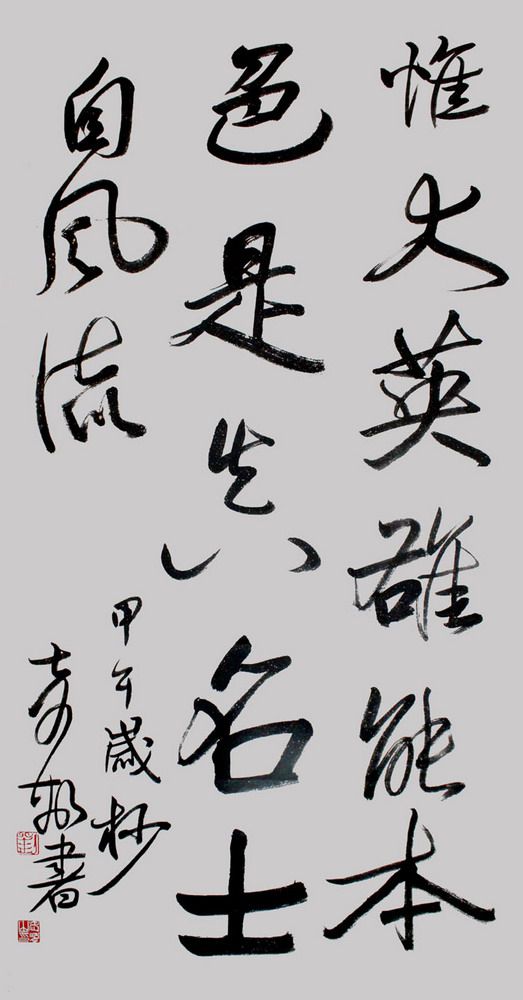 惟大英雄能本
色是真名士
自風流
甲午歲杪
奇書